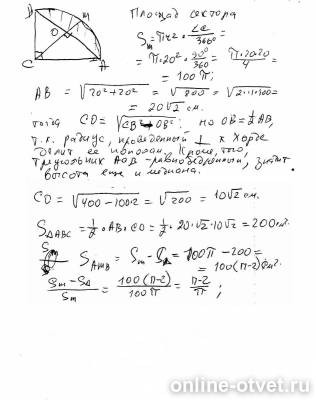 Площадь сектора
B M O C A
Sm = πr² · ∠α/360° =
= π·20² · 90°/360 = π·20·20/4 =
= 100π;
AB = √20²+20² = √800 = √2·1·400 =
= 20√2 см.
тогда CO = √CB²-OB²; но OB = ½AB,
т.к. радиус, проведенный ⊥ к хорде
делит ее пополам. Кроме, того
треугольник AOB - равнобедренный, значит
высота еще и медиана.
CO = √400-100·2 = √200 = 10√2 см.
SΔABC = ½·AB·CO = ½·20·√2·10√2 = 200 см².
SAMB = Sm - SΔ = 100π - 200 =
= 100(π-2) см²
Sm - SΔ/Sm = 100(π-2)/100π = π-2/π;
online-otvet.ru